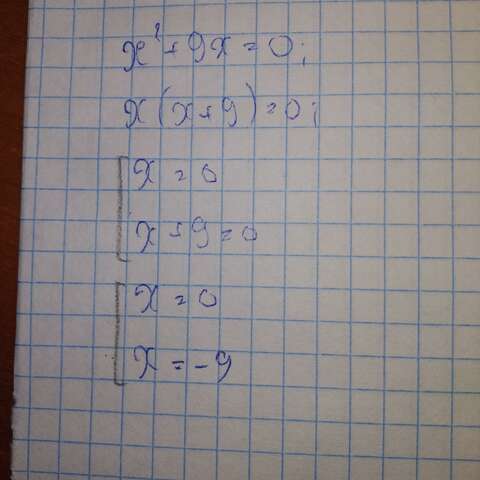 x² + 9x = 0;
x(x+9) = 0;
x = 0
x + 9 = 0
x = 0
x = -9